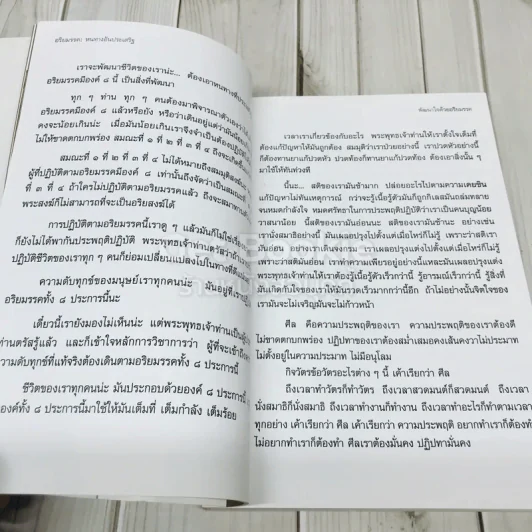 อริยมรรค: หนทางอันประเสริฐ
เราจะพัฒนาชีวิตของเราน่ะ... ต้องเอาหนทาง
อริยมรรคมีองค์ ๘ นี้ เป็นสิ่งที่พัฒนา
ทุก ๆ ท่าน ทุก ๆ คนต้องมาพิจารณาตัวเองว่า
อริยมรรคมีองค์ ๘ แล้วหรือยัง หรือว่าเดินอยู่แต่ว่ามัน
คงจะน้อยเกินน่ะ เมื่อมันน้อยเกินเราจึงจำเป็นต้องปฏิบัติ
ไม่ให้ขาดตกบกพร่อง สมณะที่ ๑ ที่ ๒ ที่ ๓ ที่ ๔ ถึงจะเกิด
สมณะที่ ๑ ที่ ๒ ที่ ๓ ที่ ๔ ไม่ได้หมายถึงสมมุติสงฆ์
ผู้ที่ปฏิบัติตามอริยมรรคมีองค์ ๘ เท่านั้นถึงจัดว่าเป็นสมณะ
ที่ ๓ ที่ ๔ ถ้าใครไม่ปฏิบัติตามอริยมรรคแล้ว ถึงจะสมาทาน
พระสงฆ์ก็ไม่สามารถที่จะเป็นอริยสงฆ์ได้
การปฏิบัติตามอริยมรรคนี้เราดู ๆ แล้วมันก็ไม่ใช่เรื่อง
ก็ยังไม่ได้พากันประพฤติปฏิบัติ พระพุทธเจ้าท่านตรัสว่าถ้า
ปฏิบัติชีวิตของเราทุก ๆ คนก็ย่อมเปลี่ยนแปลงไปในทางที่ดี
ความดับทุกข์ของมนุษย์เราทุกคนน่ะ มันอยู่ที่เรา
อริยมรรคทั้ง ๘ ประการนี้นะ
เดี๋ยวนี้เรายังมองไม่เห็นน่ะ แต่พระพุทธเจ้าท่านเป็น
ท่านตรัสรู้แล้ว และก็เข้าใจหลักการวิชาการว่า ผู้ที่จะเข้าถึง
ความดับทุกข์ที่แท้จริงต้องเดินตามอริยมรรคทั้ง ๘ ประการนี้
ชีวิตของเราทุกคนน่ะ มันประกอบด้วยองค์ ๘ ประการนี้
องค์ทั้ง ๘ ประการนี้มาใช้ให้มันเต็มที่ เต็มกำลัง เต็มร้อย
พัฒนาใจด้วยอริยมรรค
เวลาเราเกี่ยวข้องกับอะไร พระพุทธเจ้าท่านให้เราตั้งใจเต็มที่
ต้องแก้ปัญหาให้มันถูกต้อง สมมุติว่าเราป่วยอย่างนี้ เราปวดหัวอย่างนี้
ก็ต้องทานยาแก้ปวดหัว ปวดท้องก็ทานยาแก้ปวดท้อง ต้องเอาสิ่งนั้น ๆ
มาใช้ให้ทันท่วงที
นี้นะ... สติของเรามันช้ามาก ปล่อยอะไรไปตามความเคยชิน
แก้ปัญหาไม่ทันเหตุการณ์ กว่าจะรู้เนื้อรู้ตัวมันก็ถูกกิเลสมันถล่มทลาย
จนหมดกำลังใจ หมดศรัทธาในการประพฤติปฏิบัติว่าเราเป็นคนบุญน้อย
วาสนาน้อย นี้สติของเรามันอ่อนนะ สติของเรามันช้านะ อย่างเช่น
เรานั่งสมาธิอย่างนี้ มันเผลอปรุงแต่งไปตั้งแต่เมื่อไหร่ก็ไม่รู้ เพราะว่าสติเรา
มันอ่อน อย่างเราเดินจงกรม เราเผลอปรุงแต่งไปตั้งแต่เมื่อไหร่ก็ไม่รู้
เพราะว่าสติมันอ่อน เราทำความเพียรอยู่อย่างนี้แหละมันเผลอปรุงแต่ง
พระพุทธเจ้าท่านให้เราต้องรู้เนื้อรู้ตัวเร็วกว่านี้ รู้อารมณ์เร็วกว่านี้ รู้สิ่งที่
มันเกิดกับใจของเราให้มันรวดเร็วมากกว่านี้อีก ถ้าไม่อย่างนั้นจิตใจของ
เรามันจะไม่เจริญมันจะไม่ก้าวหน้า
ศีล คือความประพฤติของเรา ความประพฤติของเราต้องดี
ไม่ขาดตกบกพร่อง ปฏิปทาของเราต้องสม่ำเสมอคงเส้นคงวาไม่ประมาท
ไม่ตั้งอยู่ในความประมาท ไม่มีอนุโลม
กิจวัตรข้อวัตรอะไรต่าง ๆ นี้ เค้าเรียกว่า ศีล
ถึงเวลาทำวัตรก็ทำวัตร ถึงเวลาสวดมนต์ก็สวดมนต์ ถึงเวลา
นั่งสมาธิก็นั่งสมาธิ ถึงเวลาทำงานก็ทำงาน ถึงเวลาทำอะไรก็ทำตามเวลา
ทุกอย่าง เค้าเรียกว่า ศีล เค้าเรียกว่า ความประพฤติ อยากทำก็ต้องทำ
ไม่อยากทำก็ต้องทำ ศีลเราต้องมั่นคง ปฏิปทามั่นคง